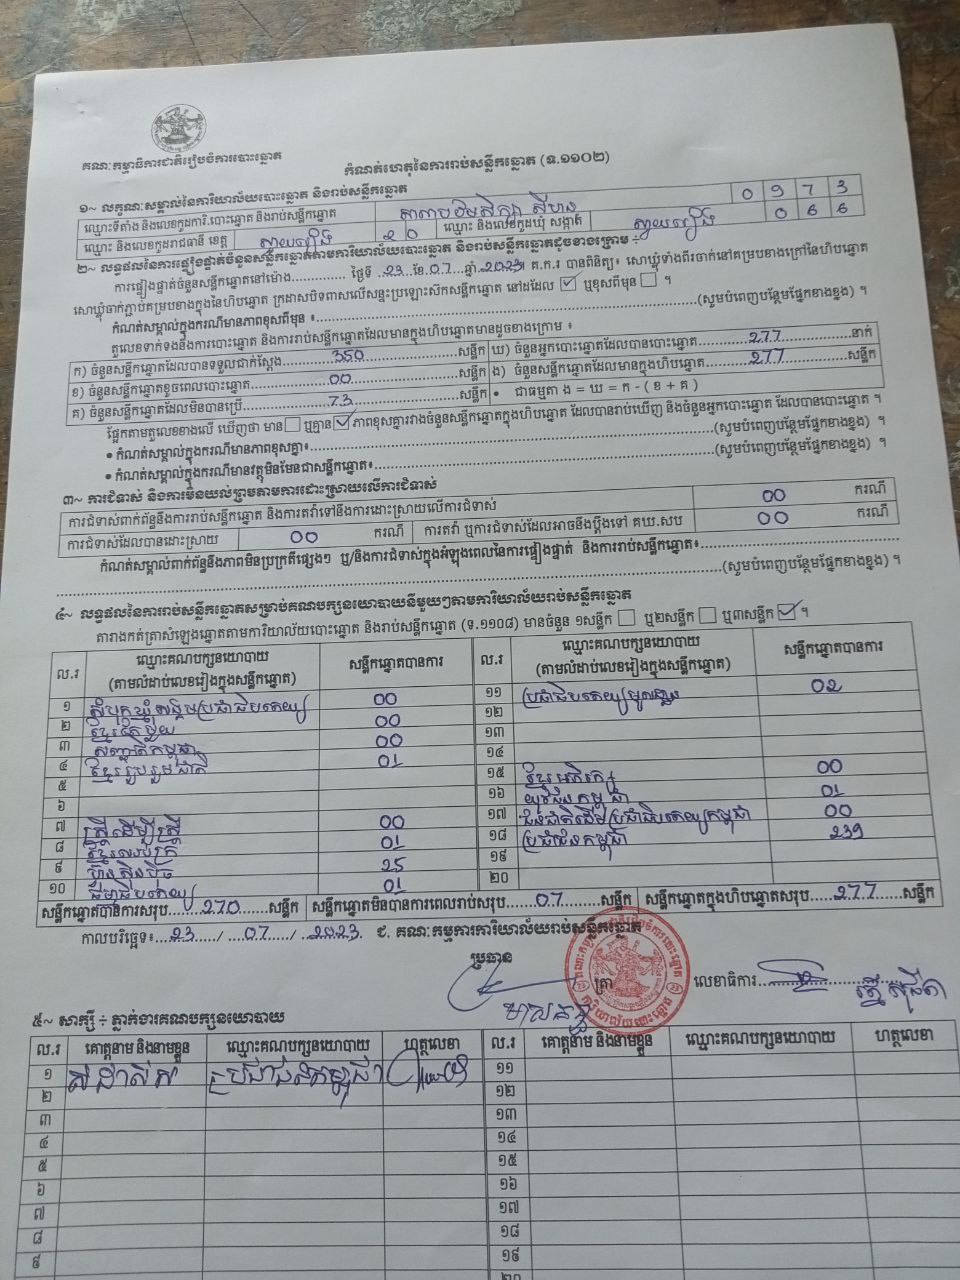 គណៈកម្មាធិការជាតិរៀបចំការបោះឆ្នោត
កំណត់ហេតុនៃការរាប់សន្លឹកឆ្នោត (ទ.១១០២)
១~ លក្ខណៈសម្គាល់នៃការិយាល័យបោះឆ្នោត និងរាប់សន្លឹកឆ្នោត
ឈ្មោះទីតាំង និងលេខកូដការិ.បោះឆ្នោត និងរាប់សន្លឹកឆ្នោត 0 9 7 3
ឈ្មោះ និងលេខកូដរាជធានី ខេត្ត ស្វាយរៀង 2 0 ឈ្មោះ និងលេខកូដឃុំ សង្កាត់ ស្វាយរៀង 0 6 6
២~ លទ្ធផលនៃការផ្ទៀងផ្ទាត់ចំនួនសន្លឹកឆ្នោតតាមការិយាល័យបោះឆ្នោត និងរាប់សន្លឹកឆ្នោតដូចខាងក្រោម ÷
ការផ្ទៀងផ្ទាត់ចំនួនសន្លឹកឆ្នោតនៅម៉ោង............. ថ្ងៃទី ..23..ខែ.07...ឆ្នាំ.2023 គ.ក.រ បានពិនិត្យ៖ សោឃ្លុំទាំងពីរចាក់នៅគម្របខាងក្រៅនៃហិបឆ្នោត
សោឃ្លុំចាក់ភ្ជាប់គម្របខាងក្នុងនៃហិបឆ្នោត ក្រដាសបិទពាសលើសន្ទះប្រឡោះសឹកសន្លឹកឆ្នោត នៅដដែល ☑ ឬខុសពីមុន ☐ ។
កំណត់សម្គាល់ក្នុងករណីមានភាពខុសពីមុន ៖..................................................(សូមបំពេញបន្ថែមផ្នែកខាងខ្នង) ។
តួលេខទាក់ទងនឹងការបោះឆ្នោត និងការរាប់សន្លឹកឆ្នោតដែលមានក្នុងហិបឆ្នោតមានដូចខាងក្រោម ៖
ក) ចំនួនសន្លឹកឆ្នោតដែលបានទទួលជាក់ស្តែង........350........សន្លឹក ឃ) ចំនួនអ្នកបោះឆ្នោតដែលបានបោះឆ្នោត........277........នាក់
ខ) ចំនួនសន្លឹកឆ្នោតខូចពេលបោះឆ្នោត........00........សន្លឹក ង) ចំនួនសន្លឹកឆ្នោតដែលមានក្នុងហិបឆ្នោត........277........សន្លឹក
គ) ចំនួនសន្លឹកឆ្នោតដែលមិនបានប្រើ........73........សន្លឹក • ជាធម្មតា ង = ឃ = ក - ( ខ + គ )
ផ្អែកតាមតួលេខខាងលើ ឃើញថា មាន ☐ ឬគ្មាន ☑ ភាពខុសគ្នារវាងចំនួនសន្លឹកឆ្នោតក្នុងហិបឆ្នោត ដែលបានរាប់ឃើញ និងចំនួនអ្នកបោះឆ្នោត ដែលបានបោះឆ្នោត ។
• កំណត់សម្គាល់ក្នុងករណីមានភាពខុសគ្នា៖..................................................(សូមបំពេញបន្ថែមផ្នែកខាងខ្នង) ។
• កំណត់សម្គាល់ក្នុងករណីមានវត្ថុមិនមែនជាសន្លឹកឆ្នោត៖..................................................(សូមបំពេញបន្ថែមផ្នែកខាងខ្នង) ។
៣~ ការជំទាស់ និងការមិនយល់ព្រមតាមការដោះស្រាយលើការជំទាស់
ការជំទាស់ពាក់ព័ន្ធនឹងការរាប់សន្លឹកឆ្នោត និងការតវ៉ាទៅនឹងការដោះស្រាយលើការជំទាស់ 00 ករណី
ការជំទាស់ដែលបានដោះស្រាយ 00 ករណី ការតវ៉ា ឬការជំទាស់ដែលអាចនឹងប្តឹងទៅ គឃ.សប 00 ករណី
កំណត់សម្គាល់ពាក់ព័ន្ធនឹងភាពមិនប្រក្រតីផ្សេងៗ ឬ/និងការជំទាស់ក្នុងអំឡុងពេលនៃការផ្ទៀងផ្ទាត់ និងការរាប់សន្លឹកឆ្នោត៖..............................
..................................................(សូមបំពេញបន្ថែមផ្នែកខាងខ្នង) ។
៤~ លទ្ធផលនៃការរាប់សន្លឹកឆ្នោតសម្រាប់គណបក្សនយោបាយនីមួយៗតាមការិយាល័យរាប់សន្លឹកឆ្នោត
តារាងកត់ត្រាសំឡេងឆ្នោតតាមការិយាល័យបោះឆ្នោត និងរាប់សន្លឹកឆ្នោត (ទ.១១០៨) មានចំនួន ១សន្លឹក ☐ ឬ២សន្លឹក ☐ ឬ៣សន្លឹក ☑ ។
ល.រ ឈ្មោះគណបក្សនយោបាយ (តាមលំដាប់លេខរៀងក្នុងសន្លឹកឆ្នោត) សន្លឹកឆ្នោតបានការ ល.រ ឈ្មោះគណបក្សនយោបាយ (តាមលំដាប់លេខរៀងក្នុងសន្លឹកឆ្នោត) សន្លឹកឆ្នោតបានការ
១ សំបុកឃ្មុំសង្គមប្រជាធិបតេយ្យ 00 ១១ ប្រជាធិបតេយ្យមូលដ្ឋាន 02
២ ខ្មែរតែមួយ 00 ១២
៣ សញ្ជាតិកម្ពុជា 00 ១៣
៤ ខ្មែររួបរួមជាតិ 01 ១៤
៥ ១៥ ខ្មែរអភិរក្ស 00
៦ ១៦ យុវជនកម្ពុជា 01
៧ ស្ត្រីដើម្បីស្ត្រី 00 ១៧ ជនជាតិដើមប្រជាធិបតេយ្យកម្ពុជា 00
៨ 01 ១៨ ប្រជាជនកម្ពុជា 239
៩ ហ៊្វុនស៊ិនប៉ិច 25 ១៩
១០ ធម្មាធិបតេយ្យ 01 ២០
សន្លឹកឆ្នោតបានការសរុប........270........សន្លឹក សន្លឹកឆ្នោតមិនបានការពេលរាប់សរុប........07........សន្លឹក សន្លឹកឆ្នោតក្នុងហិបឆ្នោតសរុប........277........សន្លឹក
កាលបរិច្ឆេទ៖...23...../ ....07...../ ...2023. ជ. គណៈកម្មការការិយាល័យរាប់សន្លឹកឆ្នោត
ប្រធាន
ត្រា
លេខាធិការ..............
៥~ សាក្សី ÷ ភ្នាក់ងារគណបក្សនយោបាយ
ល.រ គោត្តនាម និងនាមខ្លួន ឈ្មោះគណបក្សនយោបាយ ហត្ថលេខា ល.រ គោត្តនាម និងនាមខ្លួន ឈ្មោះគណបក្សនយោបាយ ហត្ថលេខា
១ ប្រជាជនកម្ពុជា ១១
២ ១២
៣ ១៣
៤ ១៤
៥ ១៥
៦ ១៦
៧ ១៧
៨ ១៨
៩ ១៩
២០